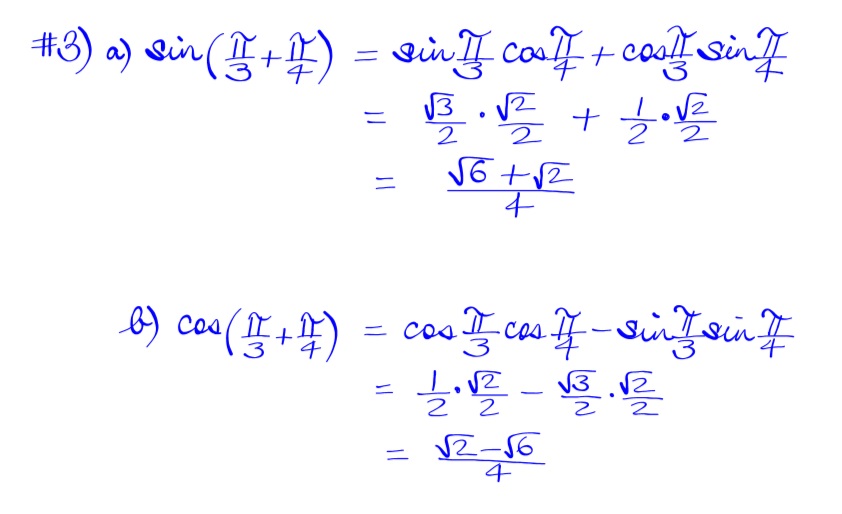 #3) a) sin(π/3 + π/4) = sin π/3 cos π/4 + cos π/3 sin π/4
= √3/2 · √2/2 + 1/2 · √2/2
= (√6 + √2)/4
b) cos(π/3 + π/4) = cos π/3 cos π/4 − sin π/3 sin π/4
= 1/2 · √2/2 − √3/2 · √2/2
= (√2 − √6)/4